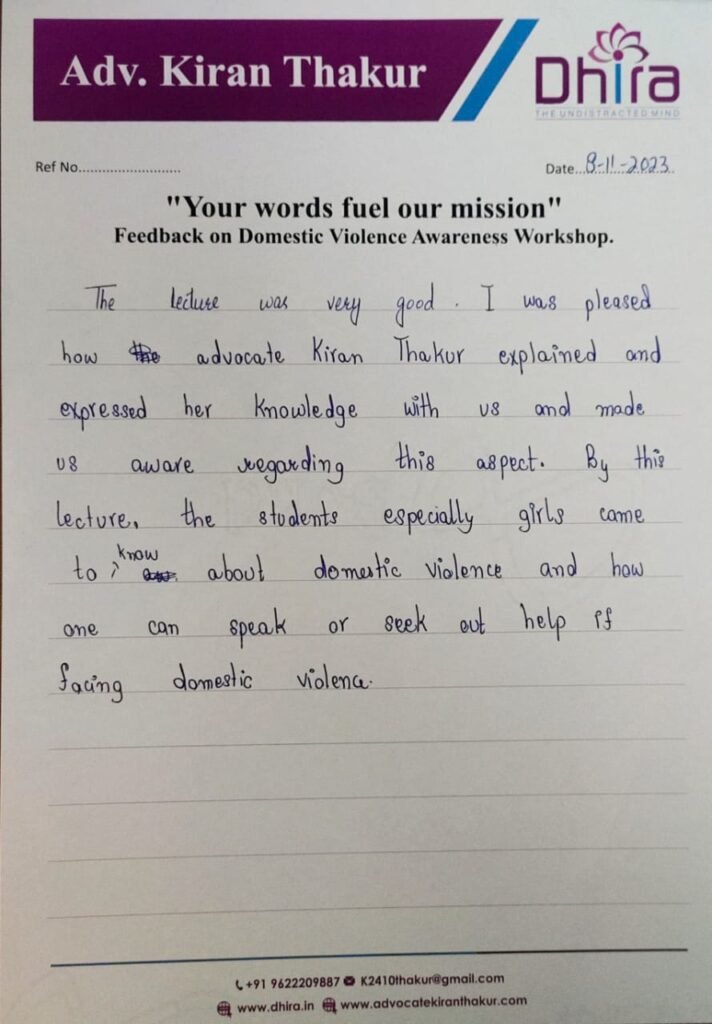 Adv. Kiran Thakur
Dhira
THE UNDISTRACTED MIND
Ref No..........................
Date...8-11-2023..
"Your words fuel our mission"
Feedback on Domestic Violence Awareness Workshop.
The lecture was very good. I was pleased
how the advocate Kiran Thakur explained and
expressed her knowledge with us and made
us aware regarding this aspect. By this
lecture, the students especially girls came
to know about domestic violence and how
one can speak or seek out help if
facing domestic violence.
+91 9622209887 K2410thakur@gmail.com
www.dhira.in www.advocatekiranthakur.com